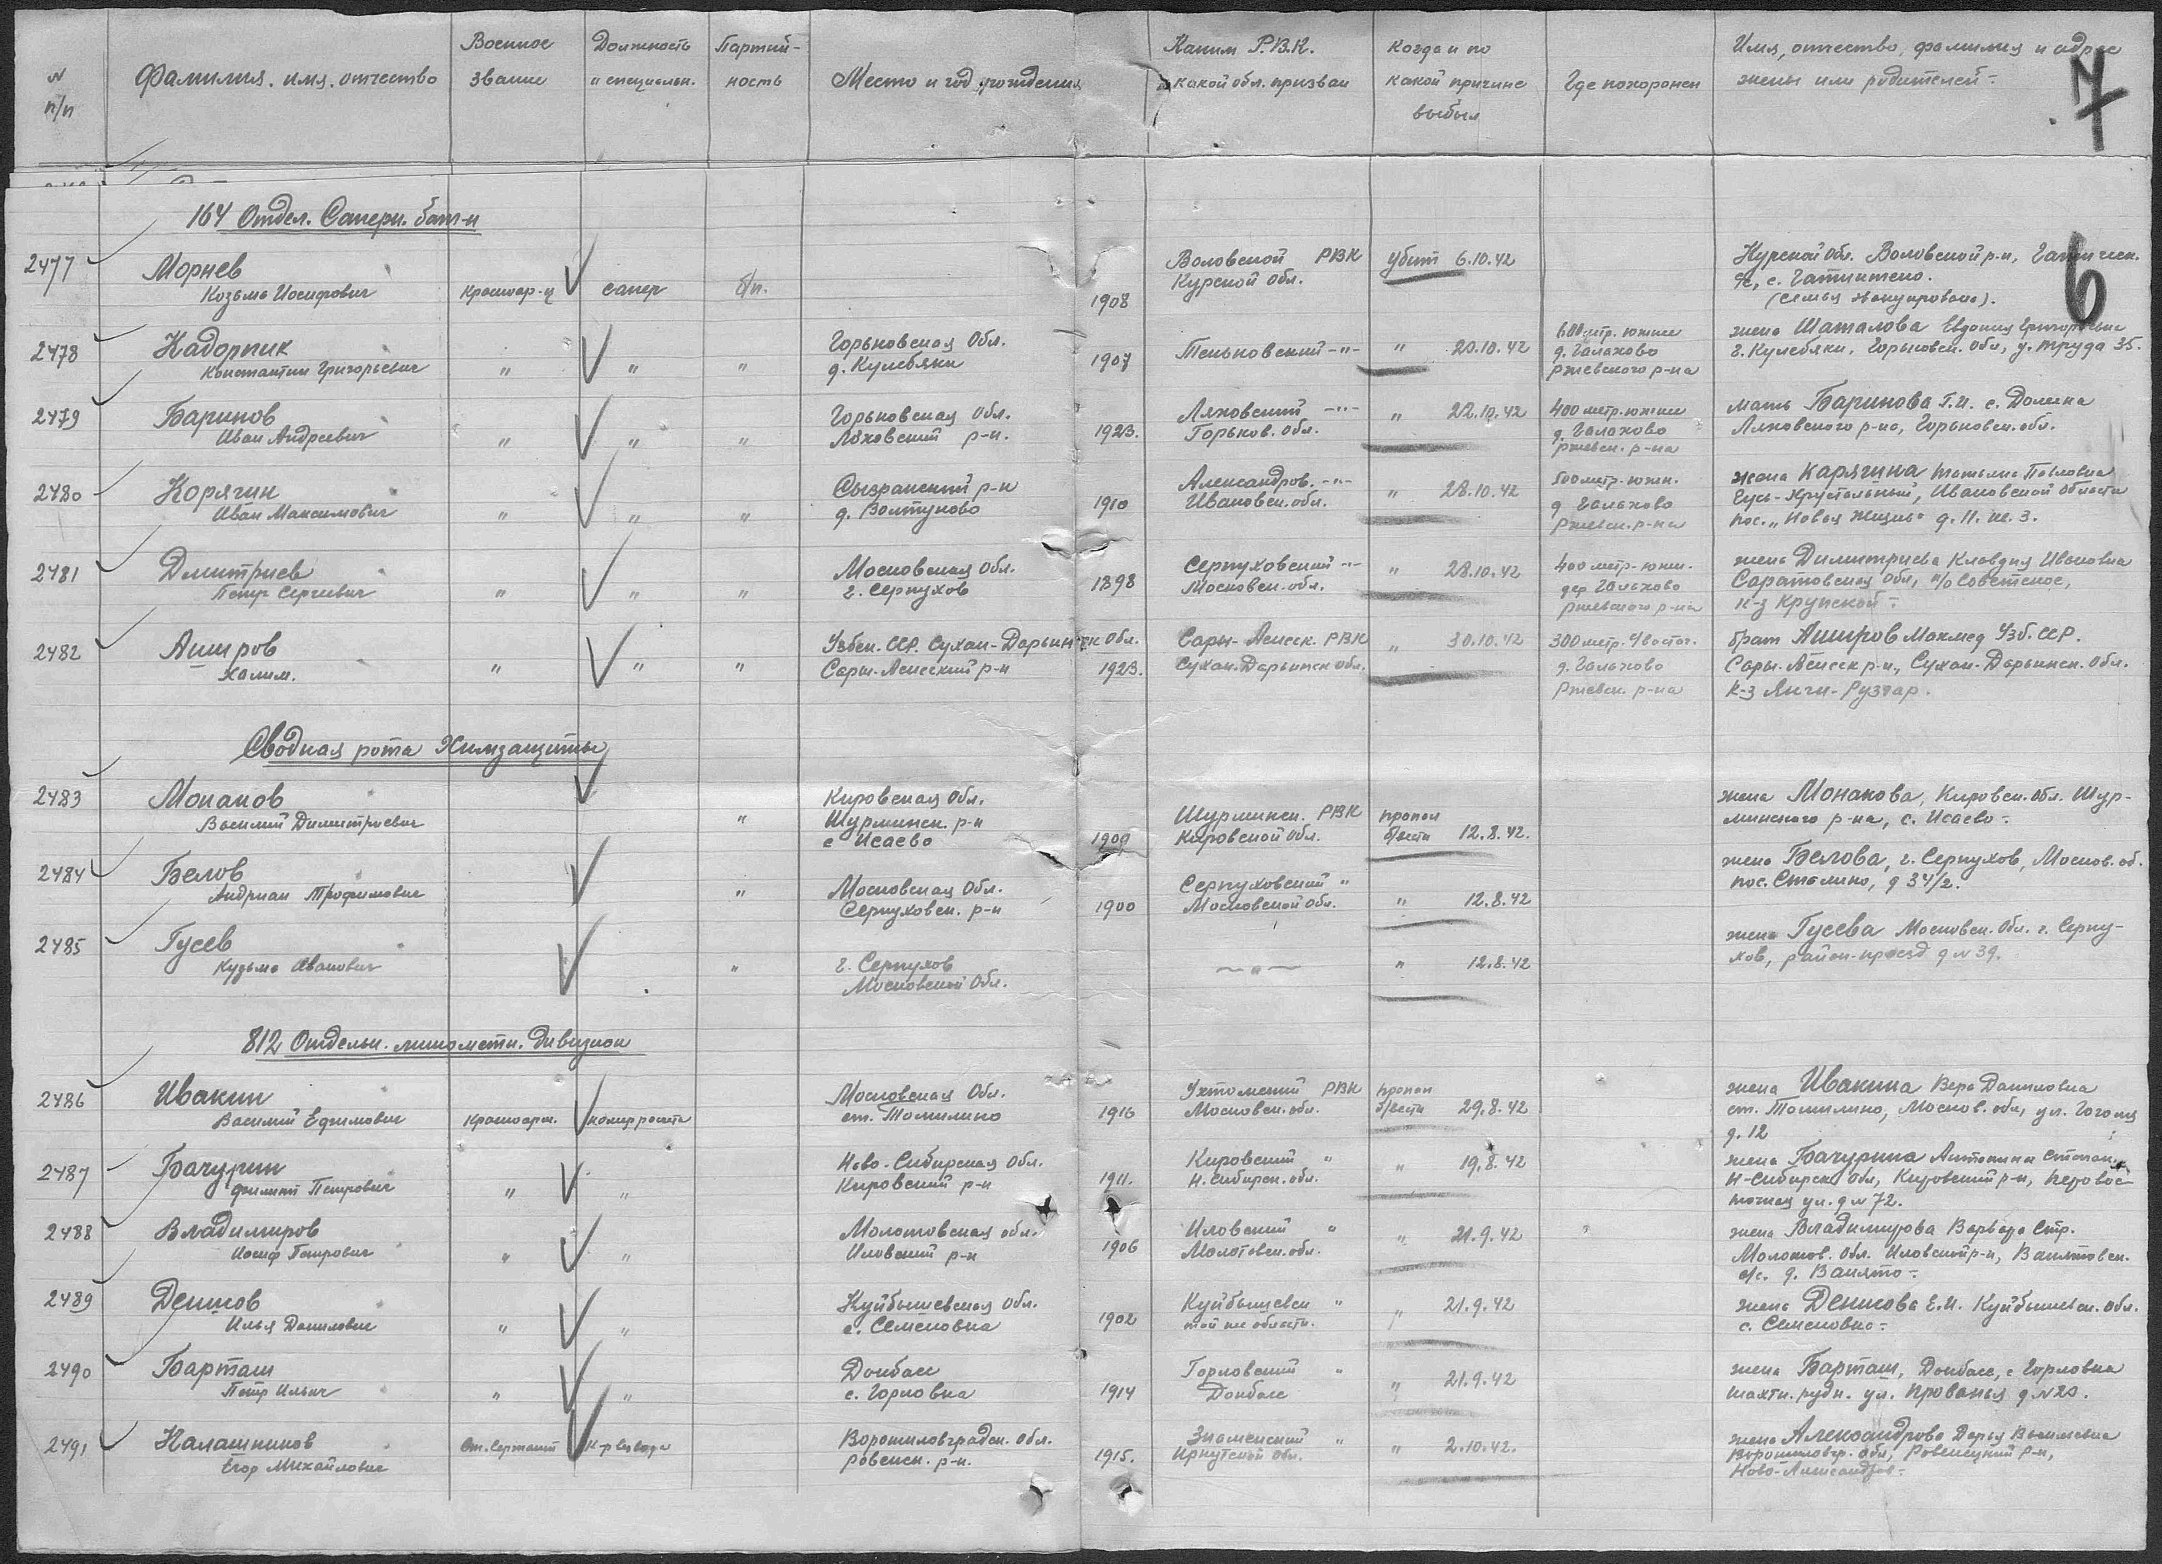 N п/п
Фамилия, имя, отчество
Военное звание
Должность и специальн.
Партий-ность
Место и год рождения
Каким Р.В.К. какой обл. призван
Когда и по какой причине выбыл
Где похоронен
Имя, отчество, фамилия и адрес жены или родителей
7
6
164 Отдел. Саперн. бат-н
2477 Морнев Козьма Иосифович Красноар-ц сапер б/п. 1908 Воловской РВК Курской Обл. убит 6.10.42 Курской Обл. Воловской р-н, с. (семья эвакуирована).
2478 Кадорпик Константин Григорьевич " " " Горьковская Обл. д. Кулебяки 1907 Теньковский -"- " 20.10.42 600 метр. южнее д. Галахово Ржевского р-на жена Шаталова Евдокия Григорьевна г. Кулебяки, Горьковск. Обл, у. Труда 35.
2479 Баринов Иван Андреевич " " " Горьковская Обл. Ляховский р-н. 1923. Ляховский -"- Горьков. Обл. " 22.10.42 400 метр. южнее д. Галахово Ржевск. р-на мать Баринова Т.И. с. Ляховского р-на, Горьковск. обл.
2480 Корягин Иван Максимович " " " Сызранский р-н д. Волтуново 1910 Александров. -"- Ивановск. обл. " 28.10.42 500 метр. южн. д. Галахово Ржевск. р-на жена Карягина Татьяна Павловна Гусь-Хрустальный, Ивановской области пос. „Новая Жизнь" д. 11. кв. 3.
2481 Дмитриев Петр Сергеевич " " " Московская Обл. г. Серпухов 1898 Серпуховский -"- Московск. обл. " 28.10.42 400 метр. южн. дер Галахово Ржевского р-на жена Димитриева Клавдия Ивановна Саратовская Обл, п/о Советское, к-з Крупской
2482 Аширов Халим. " " " Узбек. ССР. Сухан-Дарьинск Обл. Сары-Асисский р-н 1923. Сары-Асисск. РВК Сухан-Дарьинск Обл. " 30.10.42 300 метр. Ювосточ. д. Галахово Ржевск. р-на брат Аширов Махмед Узб. ССР. Сары-Асисск р-н, Сухан-Дарьинск. Обл. К-з Янги-Рузгар.
Сводная рота Химзащиты
2483 Монаков Василий Димитриевич " Кировская Обл. Шурминск. р-н с Исаево 1909 Шурминск. РВК Кировской Обл. пропал б/вести 12.8.42. жена Монакова, Кировск. Обл. Шур-минского р-на, с. Исаево
2484 Белов Андриан Трофимович " Московская Обл. Серпуховск. р-н 1900 Серпуховский " Московской Обл. " 12.8.42 жена Белова, г. Серпухов, Москов. об. пос. Сталино, д 34/2.
2485 Гусев Кузьма Иванович " г. Серпухов Московской Обл. -"- " 12.8.42 жена Гусева Московск. Обл. г. Серпу-хов, район-проезд д N 39.
812 Отдельн. минометн. дивизион
2486 Ивакин Василий Ефимович Красноарм. Московская Обл. ст. Томилино 1916 Ухтомский РВК Московск. обл. пропал б/вести 29.8.42 жена Ивакина Вера Даниловна ст. Томилино, Москов. обл, ул. Гоголя д. 12
2487 Бачурин Филипп Петрович " " Ново-Сибирская Обл. Кировский р-н 1911. Кировский " Н. Сибирск. обл. " 19.8.42 жена Бачурина Антонина Степан. Н-Сибирск Обл, Кировский р-н, ул. д N 72.
2488 Владимиров Иосиф Петрович " " Молотовская обл. Иловский р-н 1906 Иловский " Молотовск. обл. " 21.9.42 " жена Владимирова Варвара Стр. Молотов. Обл. Иловский р-н, с/с. д.
2489 Денисов Илья Данилович " " Куйбышевская Обл. с. Семеновка 1902 Куйбышевск " той же области. " 21.9.42 жена Денисова Е.И. Куйбышевск. обл. с. Семеновка
2490 Барташ Петр Ильич " " Донбасс с. Горловка 1914 Горловский " Донбасс " 21.9.42 жена Барташ, Донбасс, с Горловка шахтн. рудн. ул. д N 20.
2491 Калашников Егор Михайлович Ст. Сержант К-р взвода Ворошиловградск. Обл. Ровенск. р-н. 1915. Знаменский " Иркутской Обл. " 2.10.42. жена Александрова Дарья Ворошиловгр. обл, Ровенецкий р-н, Ново-Александров